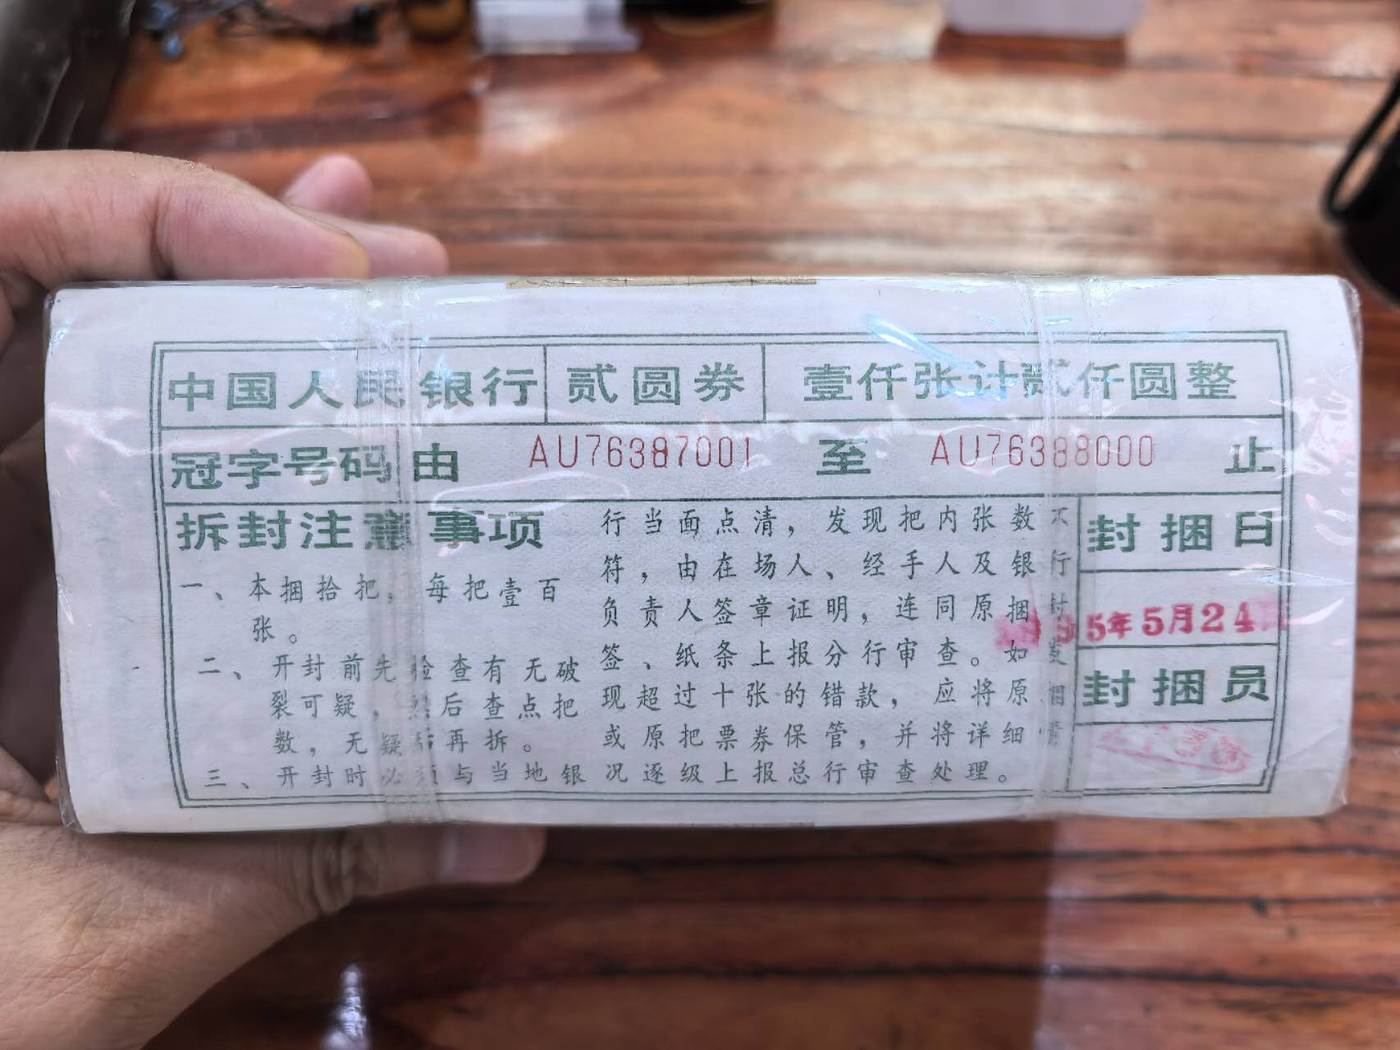 中国人民银行 贰圆券 壹仟张计贰仟圆整
冠字号码由 AU76387001 至 AU76388000 止
拆封注意事项
一、本捆拾把，每把壹百
张。
二、开封前先检查有无破
裂可疑，然后查点把
数，无疑后再拆。
三、开封时必须与当地银
行当面点清，发现把内张数不
符，由在场人、经手人及银行
负责人签章证明，连同原捆封
签、纸条上报分行审查。如发
现超过十张的错款，应将原捆
或原把票券保管，并将详细情
况逐级上报总行审查处理。
封捆日
5年5月24
封捆员